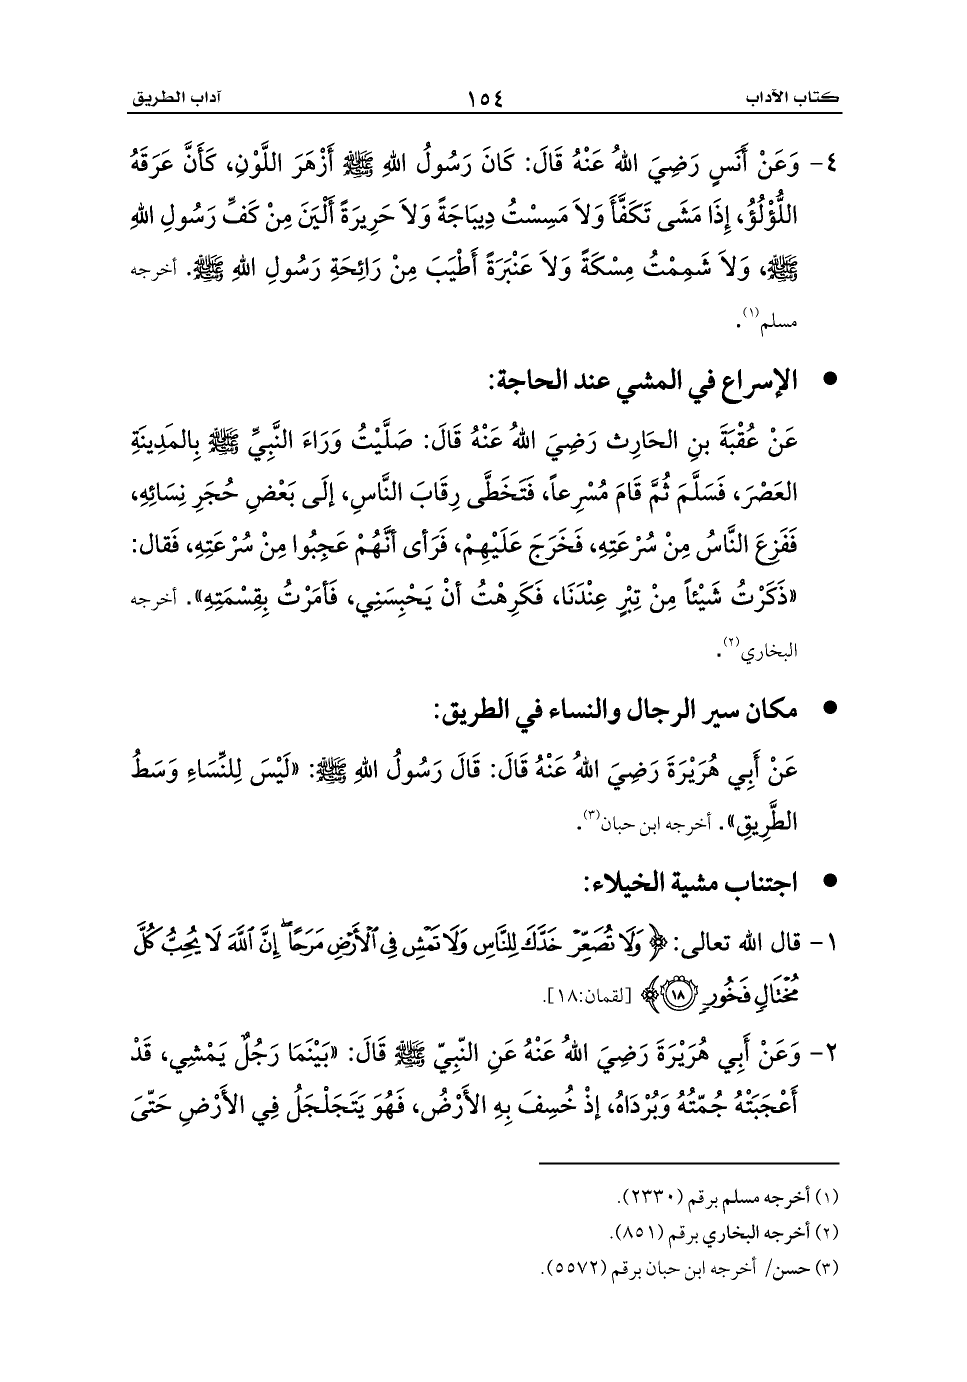 كتاب الآداب ١٥٤ آداب الطريق
٤- وَعَنْ أَنَسٍ رَضِيَ اللهُ عَنْهُ قَالَ: كَانَ رَسُولُ اللهِ ﷺ أَزْهَرَ اللَّوْنِ، كَأَنَّ عَرَقَهُ
اللُّؤْلُؤُ، إِذَا مَشَى تَكَفَّأَ وَلاَ مَسِسْتُ دِيبَاجَةً وَلاَ حَرِيرَةً أَلْيَنَ مِنْ كَفِّ رَسُولِ اللهِ
ﷺ، وَلاَ شَمِمْتُ مِسْكَةً وَلاَ عَنْبَرَةً أَطْيَبَ مِنْ رَائِحَةِ رَسُولِ اللهِ ﷺ. أخرجه
مسلم(١).
● الإسراع في المشي عند الحاجة:
عَنْ عُقْبَةَ بنِ الحَارِث رَضِيَ اللهُ عَنْهُ قَالَ: صَلَّيْتُ وَرَاءَ النَّبِيِّ ﷺ بِالمَدِينَةِ
العَصْرَ، فَسَلَّمَ ثُمَّ قَامَ مُسْرِعاً، فَتَخَطَّى رِقَابَ النَّاسِ، إلَى بَعْضِ حُجَرِ نِسَائِهِ،
فَفَزِعَ النَّاسُ مِنْ سُرْعَتِهِ، فَخَرَجَ عَلَيْهِمْ، فَرَأى أنَّهُمْ عَجِبُوا مِنْ سُرْعَتِهِ، فَقال:
«ذَكَرْتُ شَيْئاً مِنْ تِبْرٍ عِنْدَنَا، فَكَرِهْتُ أنْ يَحْبِسَنِي، فَأمَرْتُ بِقِسْمَتِهِ». أخرجه
البخاري(٢).
● مكان سير الرجال والنساء في الطريق:
عَنْ أَبِي هُرَيْرَةَ رَضِيَ اللهُ عَنْهُ قَالَ: قَالَ رَسُولُ اللهِ ﷺ: «لَيْسَ لِلنِّسَاءِ وَسَطُ
الطَّرِيقِ». أخرجه ابن حبان(٣).
● اجتناب مشية الخيلاء:
١- قال الله تعالى: ﴿وَلَا تُصَعِّرۡ خَدَّكَ لِلنَّاسِ وَلَا تَمۡشِ فِي ٱلۡأَرۡضِ مَرَحًاۖ إِنَّ ٱللَّهَ لَا يُحِبُّ كُلَّ
مُخۡتَالٖ فَخُورٖ ١٨﴾ [لقمان:١٨].
٢- وَعَنْ أَبِي هُرَيْرَةَ رَضِيَ اللهُ عَنْهُ عَنِ النّبِيّ ﷺ قَالَ: «بَيْنَمَا رَجُلٌ يَمْشِي، قَدْ
أَعْجَبَتْهُ جُمّتُهُ وَبُرْدَاهُ، إذْ خُسِفَ بِهِ الأَرْضُ، فَهُوَ يَتَجَلْجَلُ فِي الأَرْضِ حَتّىَ
(١) أخرجه مسلم برقم (٢٣٣٠).
(٢) أخرجه البخاري برقم (٨٥١).
(٣) حسن/ أخرجه ابن حبان برقم (٥٥٧٢).